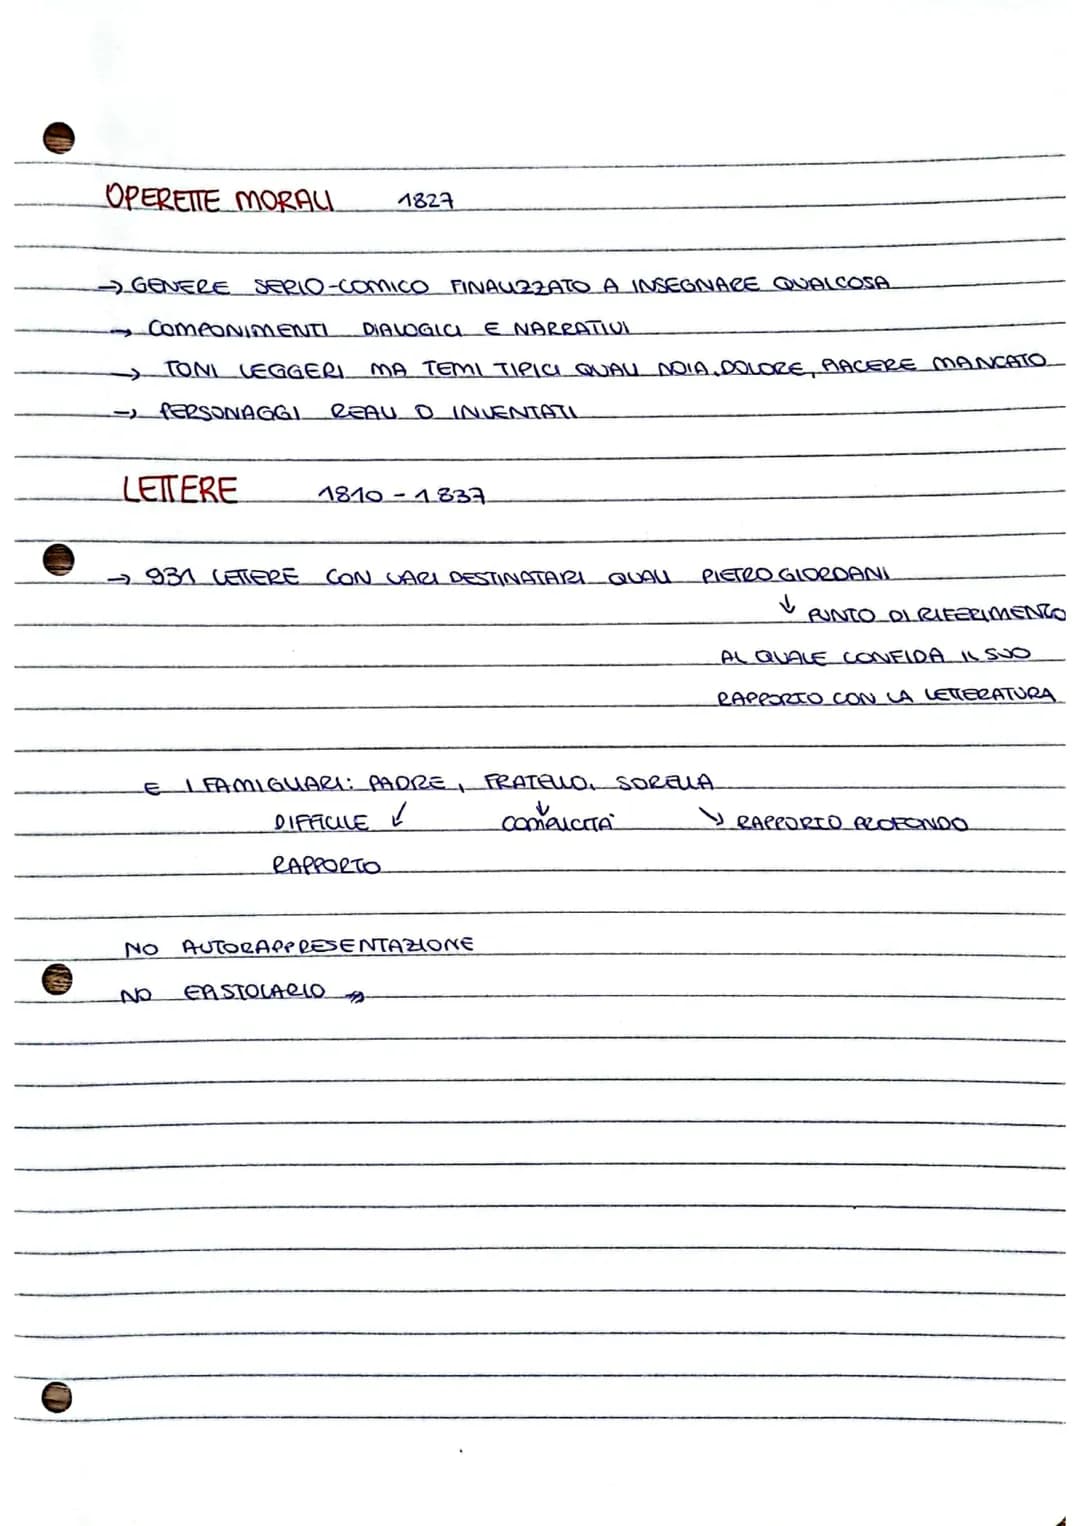 OPERETTE MORALI 1827
→ GENERE SERIO-COMICO FINALIZZATO A INSEGNARE QUALCOSA
→ COMPONIMENTI DIALOGICI E NARRATIVI
→ TONI LEGGERI MA TEMI TIPICI QUALI NOIA, DOLORE, PIACERE MANCATO
→ PERSONAGGI REALI O INVENTATI
LETTERE 1810 - 1837
→ 931 LETTERE CON VARI DESTINATARI QUALI PIETRO GIORDANI
↓ PUNTO DI RIFERIMENTO
AL QUALE CONFIDA IL SUO
RAPPORTO CON LA LETTERATURA
E I FAMIGLIARI: PADRE, FRATELLO, SORELLA
DIFFICILE ↙ COMPLICITÀ ↘ RAPPORTO PROFONDO
RAPPORTO
NO AUTORAPPRESENTAZIONE
NO EPISTOLARIO →